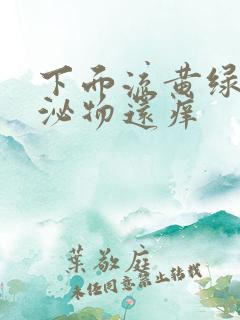 下面流黄绿
泌物还痒
葉敬庭
未经同意禁止转载